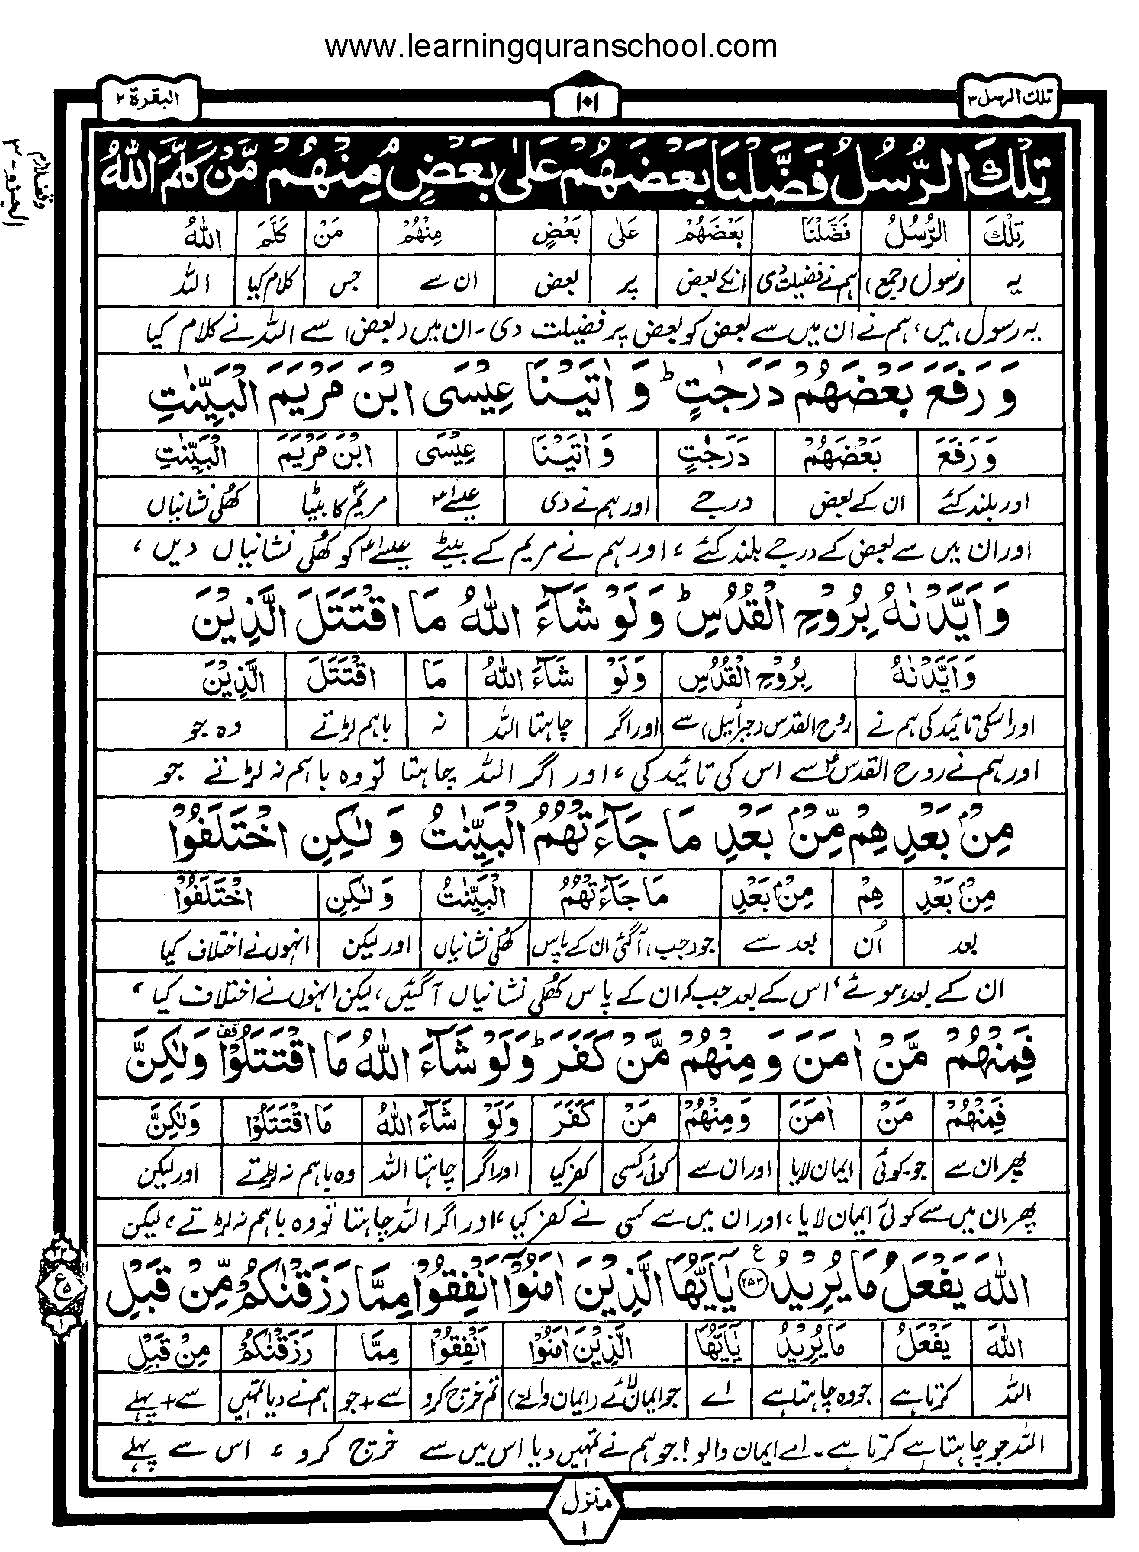 www.learningquranschool.com
تلك الرسل ٣ ١٠١ البقرة ٢
تِلْكَ الرُّسُلُ فَضَّلْنَا بَعْضَهُمْ عَلٰى بَعْضٍ ۘ مِنْهُمْ مَّنْ كَلَّمَ اللّٰهُ
تِلْكَ الرُّسُلُ فَضَّلْنَا بَعْضَهُمْ عَلٰى بَعْضٍ مِنْهُمْ مَنْ كَلَّمَ اللّٰهُ
یہ رسول (جمع) ہم نے فضیلت دی انکے بعض پر بعض ان سے جس کلام کیا اللہ
یہ رسول ہیں، ہم نے ان میں سے بعض کو بعض پر فضیلت دی۔ ان میں (بعض) سے اللہ نے کلام کیا
وَ رَفَعَ بَعْضَهُمْ دَرَجٰتٍ ؕ وَ اٰتَيْنَا عِيْسَى ابْنَ مَرْيَمَ الْبَيِّنٰتِ
وَ رَفَعَ بَعْضَهُمْ دَرَجٰتٍ وَ اٰتَيْنَا عِيْسَى ابْنَ مَرْيَمَ الْبَيِّنٰتِ
اور بلند کئے ان کے بعض درجے اور ہم نے دی عیسٰے مریم کا بیٹا کھلی نشانیاں
اور ان میں سے بعض کے درجے بلند کئے، اور ہم نے مریم کے بیٹے عیسٰے کو کھلی نشانیاں دیں،
وَ اَيَّدْنٰهُ بِرُوْحِ الْقُدُسِ ؕ وَ لَوْ شَآءَ اللّٰهُ مَا اقْتَتَلَ الَّذِيْنَ
وَ اَيَّدْنٰهُ بِرُوْحِ الْقُدُسِ وَلَوْ شَآءَ اللّٰهُ مَا اقْتَتَلَ الَّذِيْنَ
اور اسکی تائید کی ہم نے روح القدس (جبرائیل) سے اور اگر چاہتا اللہ نہ باہم لڑتے وہ جو
اور ہم نے روح القدس سے اس کی تائید کی، اور اگر اللہ چاہتا تو وہ باہم نہ لڑتے جو
مِنْۢ بَعْدِهِمْ مِّنْۢ بَعْدِ مَا جَآءَتْهُمُ الْبَيِّنٰتُ وَ لٰكِنِ اخْتَلَفُوْا
مِنْۢ بَعْدِ هِمْ مِنْۢ بَعْدِ مَا جَآءَتْهُمُ الْبَيِّنٰتُ وَ لٰكِنِ اخْتَلَفُوْا
بعد اُن بعد سے جو (جب) آگئی ان کے پاس کھلی نشانیاں اور لیکن انہوں نے اختلاف کیا
ان کے بعد ہوئے، اس کے بعد جبکہ ان کے پاس کھلی نشانیاں آگئیں، لیکن انہوں نے اختلاف کیا،
فَمِنْهُمْ مَّنْ اٰمَنَ وَ مِنْهُمْ مَّنْ كَفَرَ ؕ وَ لَوْ شَآءَ اللّٰهُ مَا اقْتَتَلُوْا ۫ وَ لٰكِنَّ
فَمِنْهُمْ مَنْ اٰمَنَ وَ مِنْهُمْ مَنْ كَفَرَ وَ لَوْ شَآءَ اللّٰهُ مَا اقْتَتَلُوْا وَ لٰكِنَّ
پھر ان سے جو۔ کوئی ایمان لایا اور ان سے کوئی، کسی کفر کیا اور اگر چاہتا اللہ وہ باہم نہ لڑتے اور لیکن
پھر ان میں سے کوئی ایمان لایا، اور ان میں سے کسی نے کفر کیا، اور اگر اللہ چاہتا تو وہ باہم نہ لڑتے، لیکن
اللّٰهَ يَفْعَلُ مَا يُرِيْدُ ﴿۲۵۳﴾ ع يٰۤاَيُّهَا الَّذِيْنَ اٰمَنُوْۤا اَنْفِقُوْا مِمَّا رَزَقْنٰكُمْ مِّنْ قَبْلِ
اللّٰهَ يَفْعَلُ مَا يُرِيْدُ يٰۤاَيُّهَا الَّذِيْنَ اٰمَنُوْۤا اَنْفِقُوْا مِمَّا رَزَقْنٰكُمْ مِنْ قَبْلِ
اللہ کرتا ہے جو وہ چاہتا ہے اے جو ایمان لائے (ایمان والے) تم خرچ کرو سے + جو ہم نے دیا تمہیں سے + پہلے
اللہ جو چاہتا ہے کرتا ہے۔ اے ایمان والو! جو ہم نے تمہیں دیا اس میں سے خرچ کرو، اس سے پہلے
منزل
١